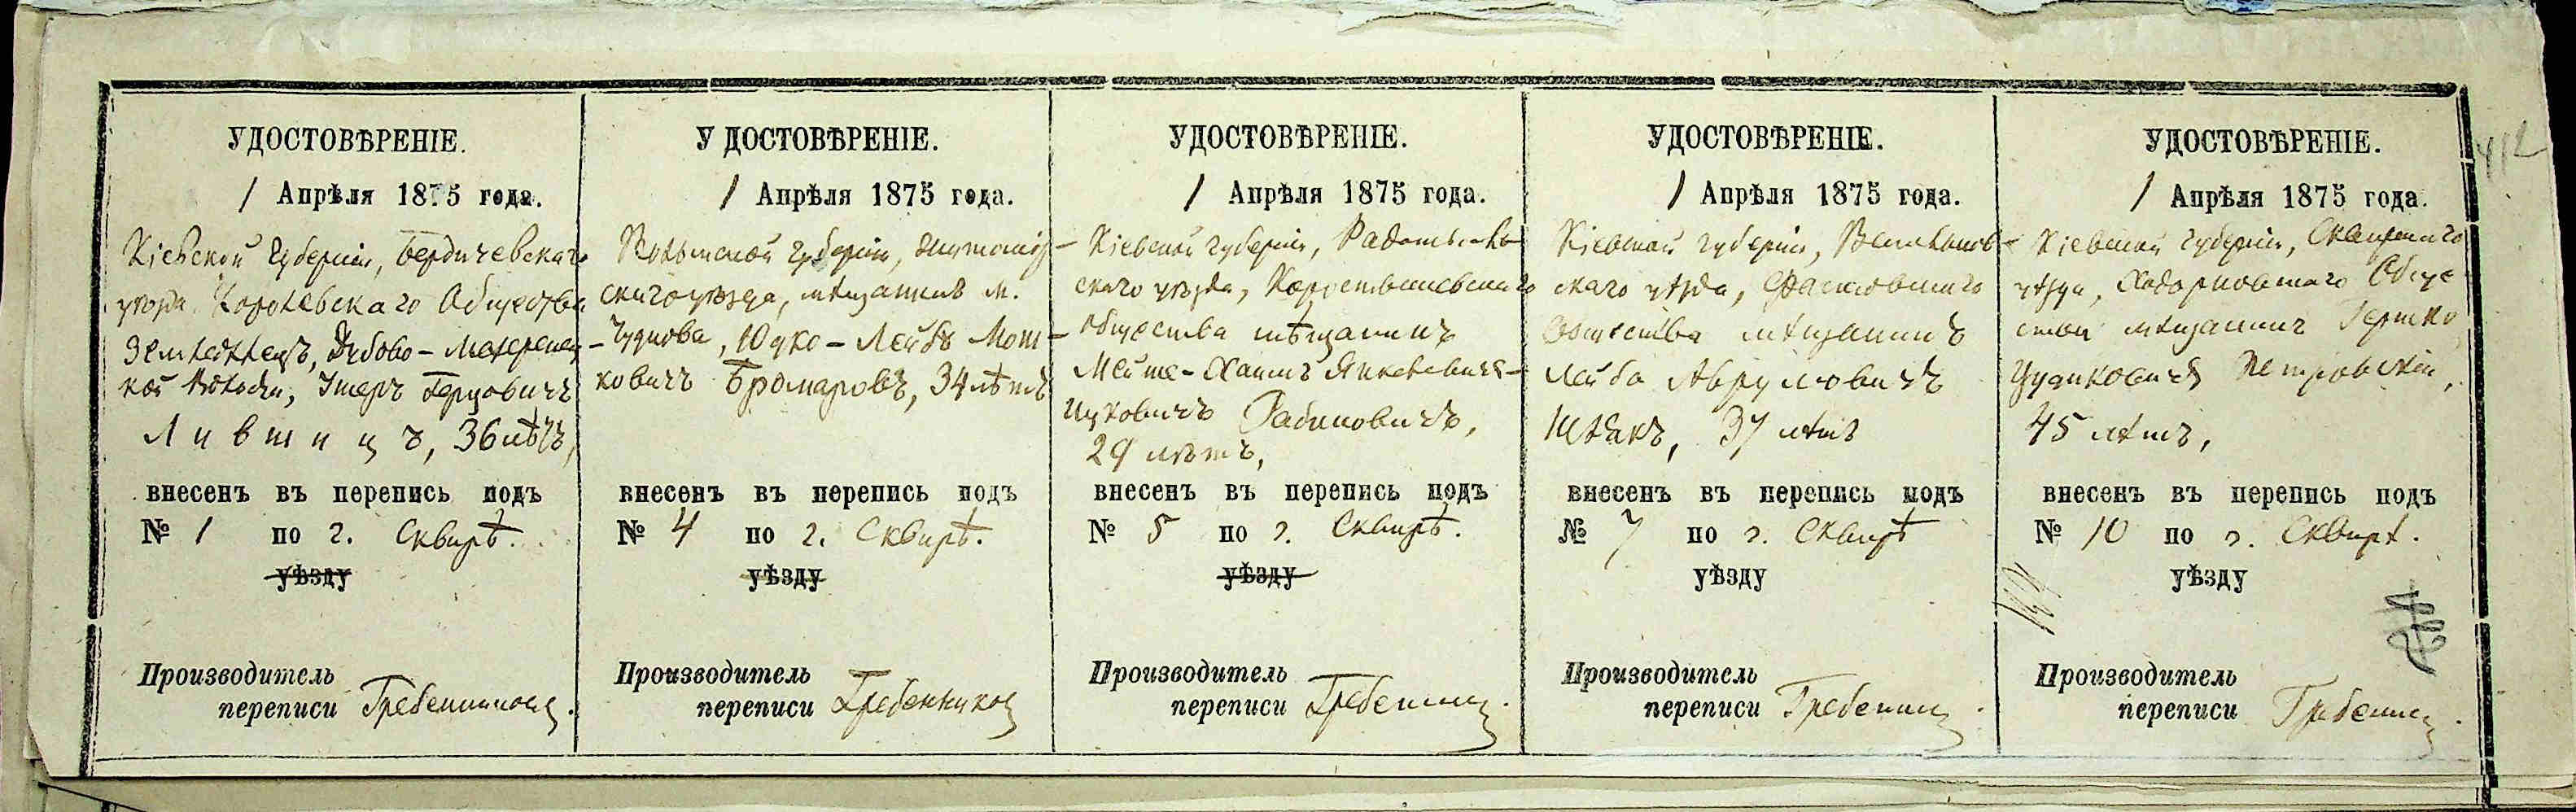 412
УДОСТОВѢРЕНІЕ.
1 Апрѣля 1875 года.
Кіевской Губерніи, Бердичевскаго
уѣзда Общества
Земледѣлецъ, Дубово-Махаринец-
кой Волости, Умеръ Берковичъ
Лившицъ, 36 лѣтъ,
внесенъ въ перепись подъ
№ 1 по г. Сквирѣ.
уѣзду
Производитель
переписи Гребенниковъ.
У ДОСТОВѢРЕНІЕ.
1 Апрѣля 1875 года.
Волынской Губерніи, Житомір-
скаго уѣзда, мѣщанинъ м.
Чуднова, Юдко-Лейбъ Мош-
ковичъ 34 лѣтъ
внесенъ въ перепись подъ
№ 4 по г. Сквирѣ.
уѣзду
Производитель
переписи Гребенниковъ
УДОСТОВѢРЕНІЕ.
1 Апрѣля 1875 года.
Кіевской губерніи, Радомысль-
скаго уѣзда, Коростышевскаго
Общества мѣщанинъ
Хаимъ Янкелевичъ-
Ицковичъ Рабиновичъ,
29 лѣтъ,
внесенъ въ перепись подъ
№ 5 по г. Сквирѣ.
уѣзду
Производитель
переписи
УДОСТОВѢРЕНІЕ.
1 Апрѣля 1875 года.
Кіевской губерніи, Васильков-
скаго уѣзда, Фастовскаго
Общества мѣщанинъ
Лейба Аврумовичъ
37 лѣтъ
внесенъ въ перепись подъ
№ 7 по г. Сквирѣ
уѣзду
Производитель
переписи
УДОСТОВѢРЕНІЕ.
1 Апрѣля 1875 года.
Кіевской губерніи, Сквирскаго
уѣзда, Ходорковскаго Обще
ства мѣщанинъ Гершко
Петровскій,
45 лѣтъ,
внесенъ въ перепись подъ
№ 10 по г. Сквирѣ.
уѣзду
Производитель
переписи